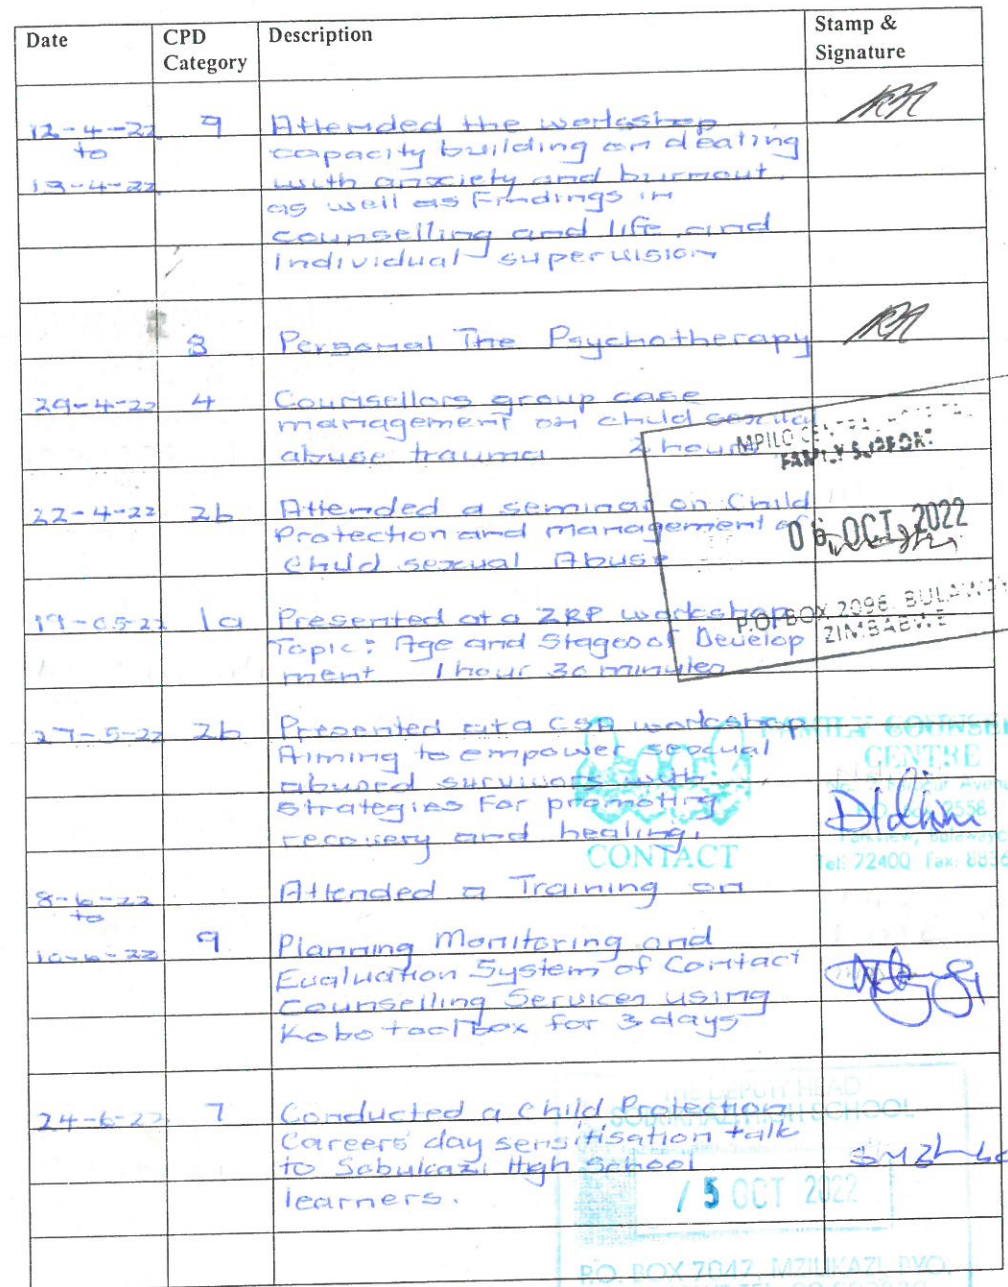 Date CPD Category Description Stamp & Signature
12-4-22 9 Attended the workshop
to capacity building on dealing
13-4-22 with anxiety and burnout.
as well as Findings in
counselling and life and
Individual supervision
3 Personal The Psychotherapy
29-4-22 4 Counsellors group case
management on child sexual
abuse trauma 2 hours
MPILO CENTRAL HOSPITAL
FAMILY SUPPORT
22-4-22 2b Attended a seminar on Child
Protection and management of
Child sexual Abuse
06 OCT 2022
19-05-22 1a Presented at a ZRP workshop
Topic: Age and Stages of Develop
ment 1 hour 30 minutes
P.O. BOX 2096 BULAWAY
ZIMBABWE
27-5-22 2b Presented at a CSA workshop
Aiming to empower sexual
abused survivors with
strategies For promoting
recovery and healing.
FAMILY COUNSEL
CENTRE
CONTACT
Tel: 72400 Fax:
8-6-22 Attended a Training on
to
10-6-22 9 Planning Monitoring and
Evaluation System of Contact
Counselling Services using
Kobo toolbox for 3 days
24-6-22 7 Conducted a Child Protection
Careers day sensitisation talk
to Sobukazi High School
learners.
THE DEPUTY HEAD
SOBUKAZI HIGH SCHOOL
5 OCT 2022
P.O. BOX 7047, MZILIKAZI, BYO,